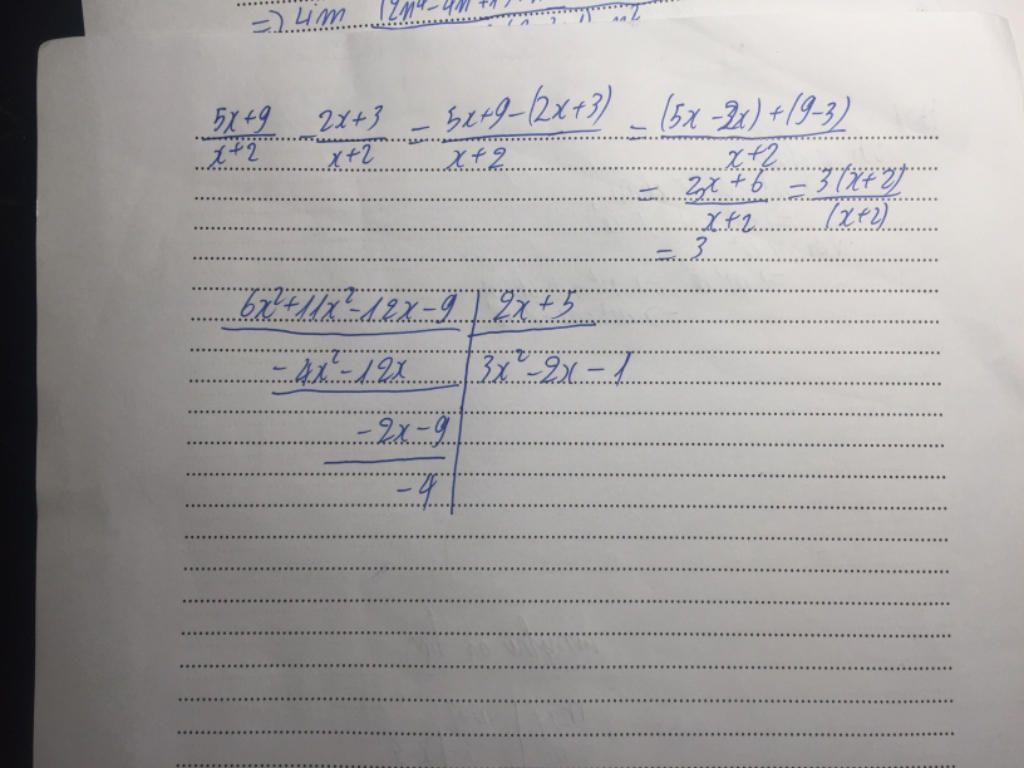 =) 4m
5x+9/x+2 - 2x+3/x+2 = 5x+9-(2x+3)/x+2 = (5x-2x)+(9-3)/x+2
= 3x+6/x+2 = 3(x+2)/(x+2)
= 3
6x²+11x²-12x-9 | 2x+5
-4x²-12x | 3x²-2x-1
-2x-9
-4